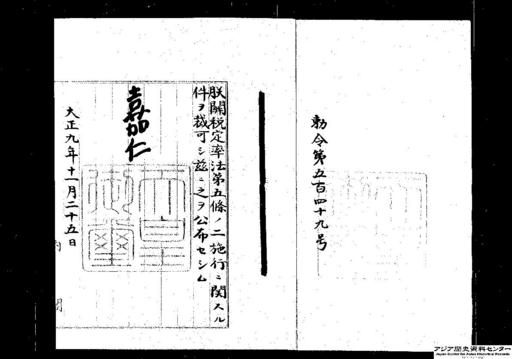 勅令第五百四十九号
朕關税定率法第五條ノ二施行ニ関スル
件ヲ裁可シ茲ニ之ヲ公布セシム
嘉仁
大正九年十一月二十五日
内閣
アジア歴史資料センター
Japan Center for Asian Historical Records